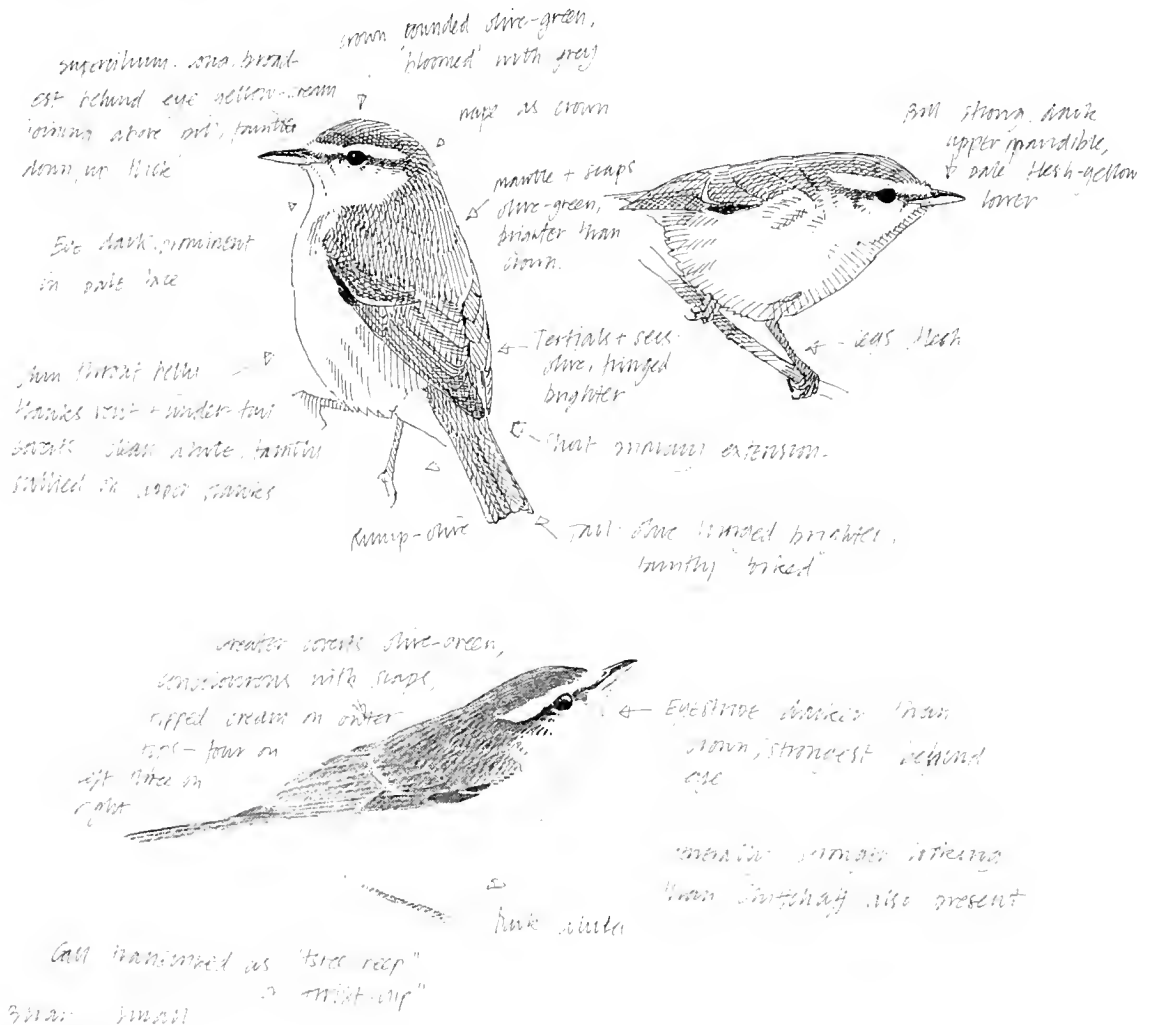 crown rounded olive-green,
'bloomed' with grey
supercilium broad-
est behind eye yellow-cream
joining above bill, fainter
down
nape as crown
Bill strong dark
upper mandible,
& pale flesh-yellow
lower
mantle + scaps
olive-green,
brighter than
crown.
Eye dark, prominent
in pale face
Tertials + secs
olive, fringed
brighter
legs flesh
throat belly
flanks vent + under-tail
coverts clean white faintly
sullied on upper flanks
Short primary extension-
Rump-olive
Tail-olive fringed brighter,
faintly
greater coverts olive-green,
concolorous with scaps,
tipped cream on outer
tips - four on
left three on
right
Eyestripe darker than
crown, strongest behind
eye
generally stronger looking
than Chiffchaff also present
Call transcribed as "tsree reep"
or
Brian Small